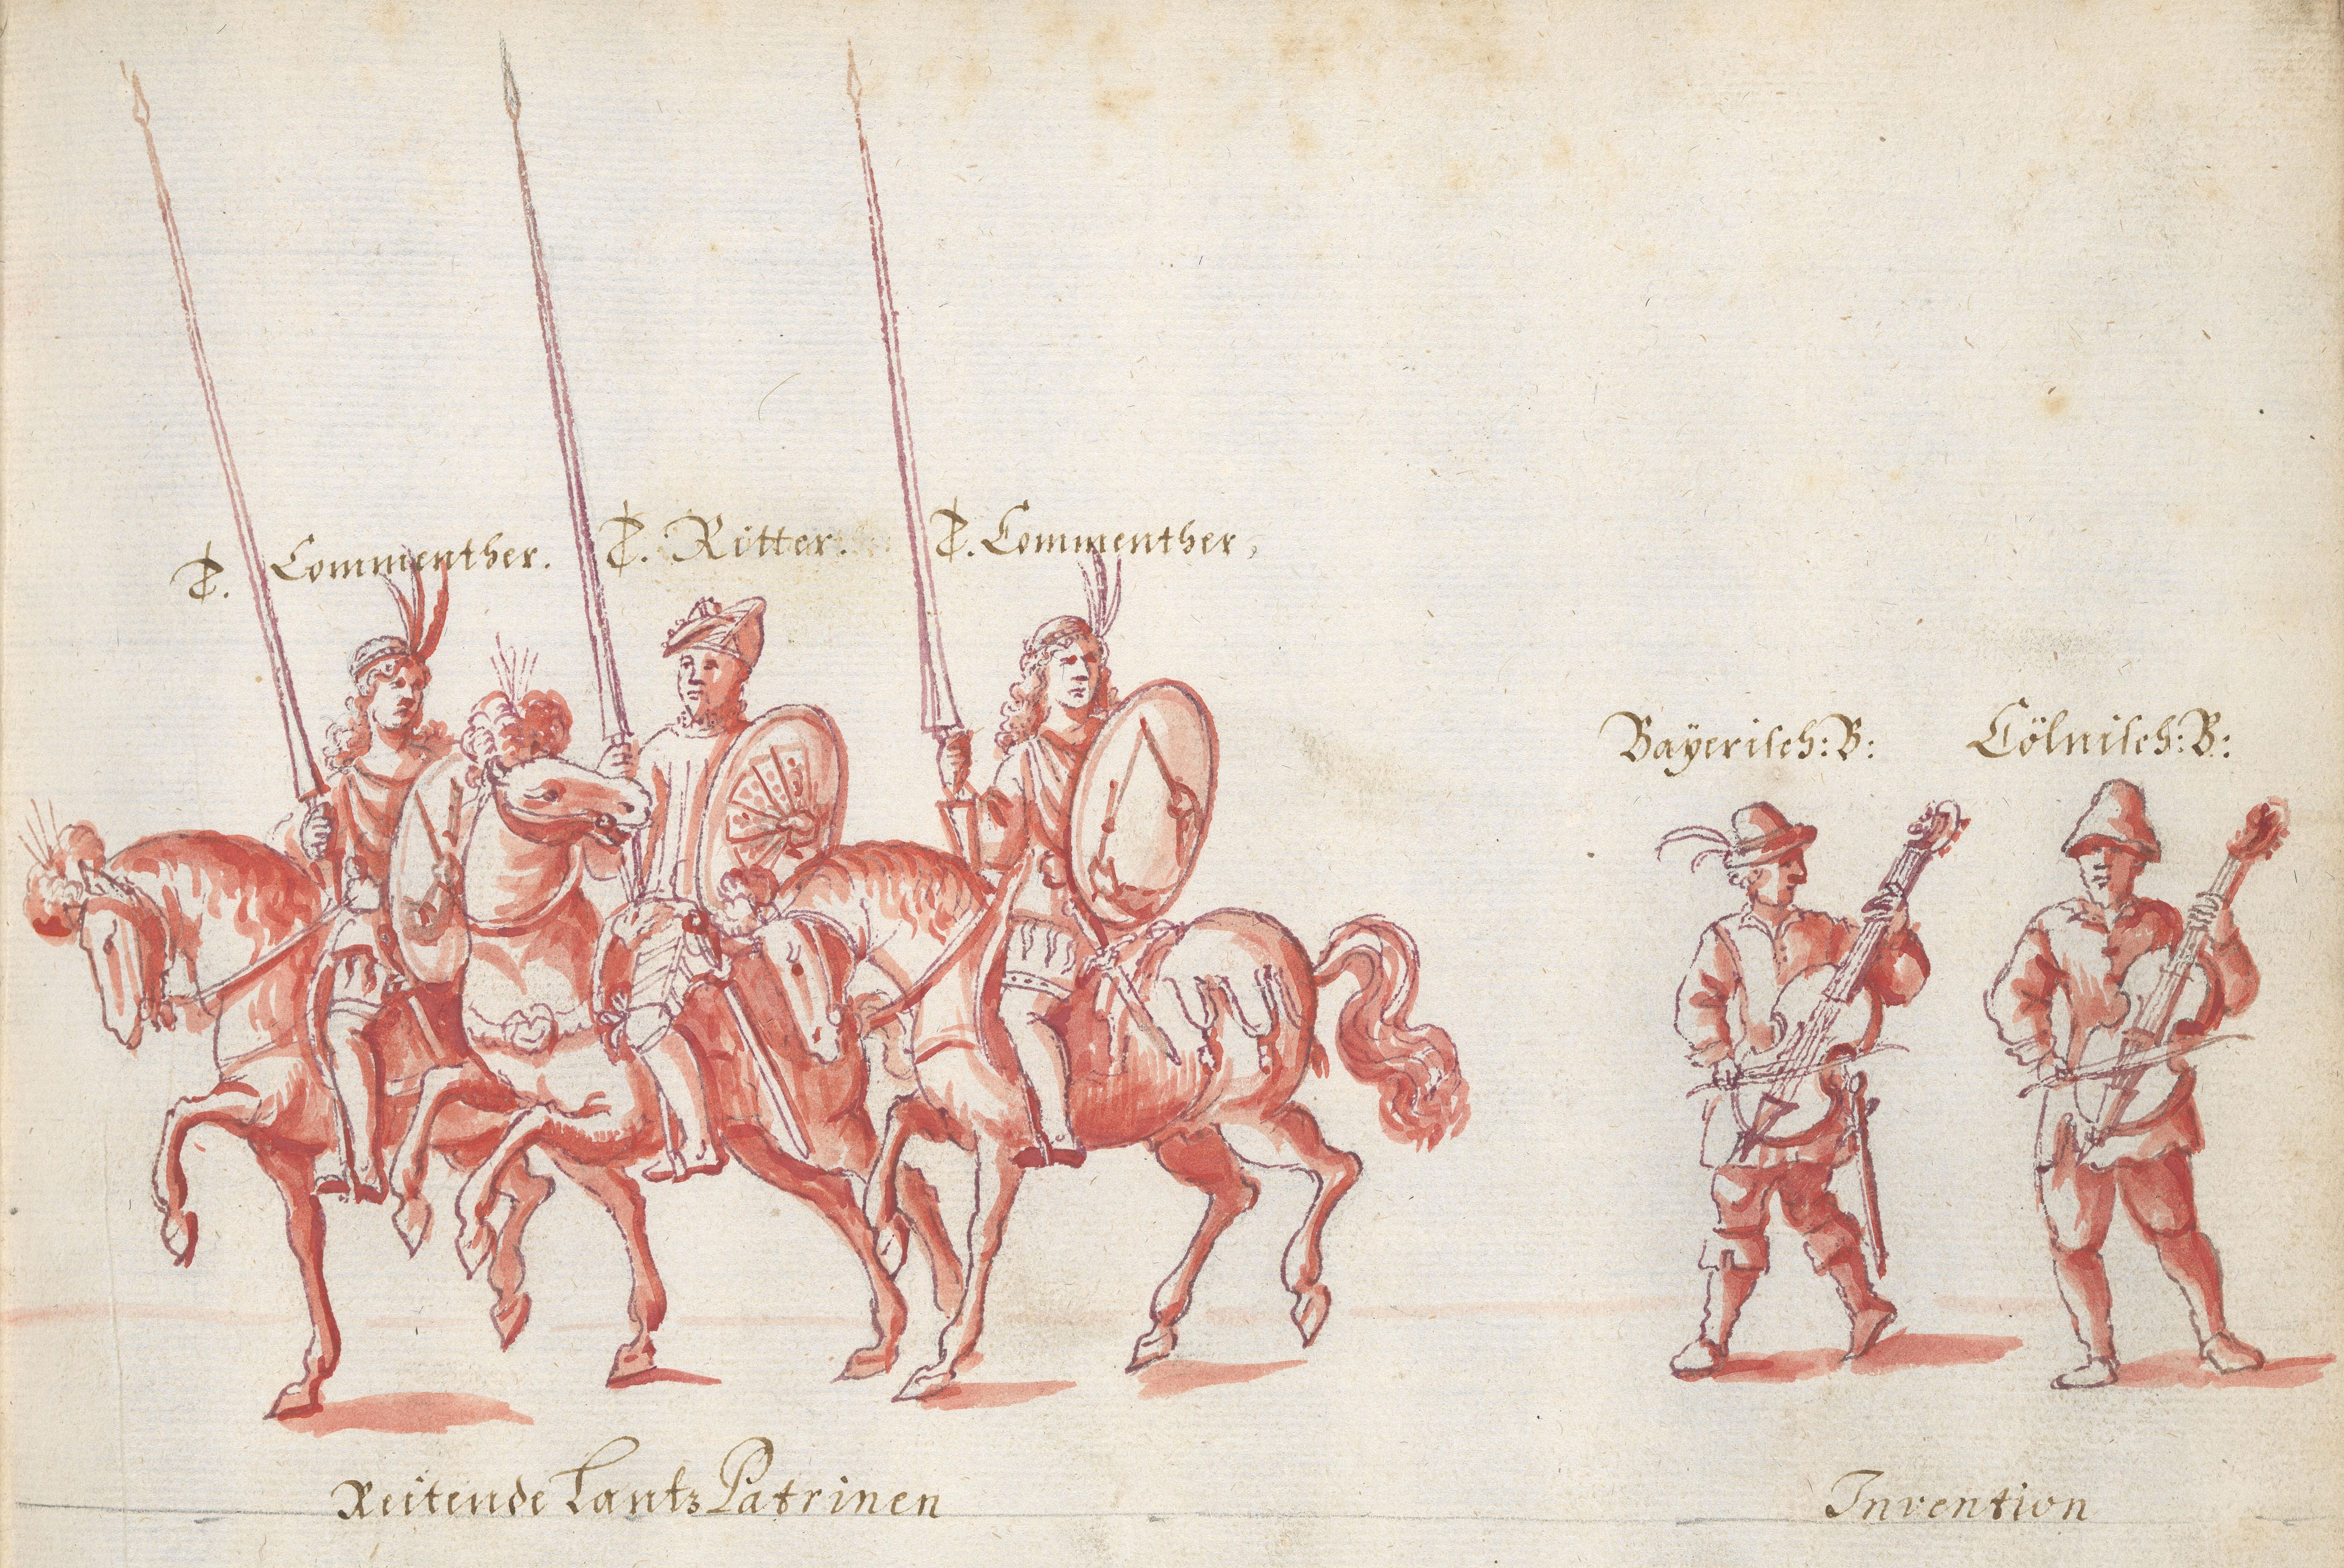 T. Commenther. T. Ritter. T. Commenther,
Baÿerisch: B: Cölnisch: B:
Reitende Lantz Patrinen
Invention